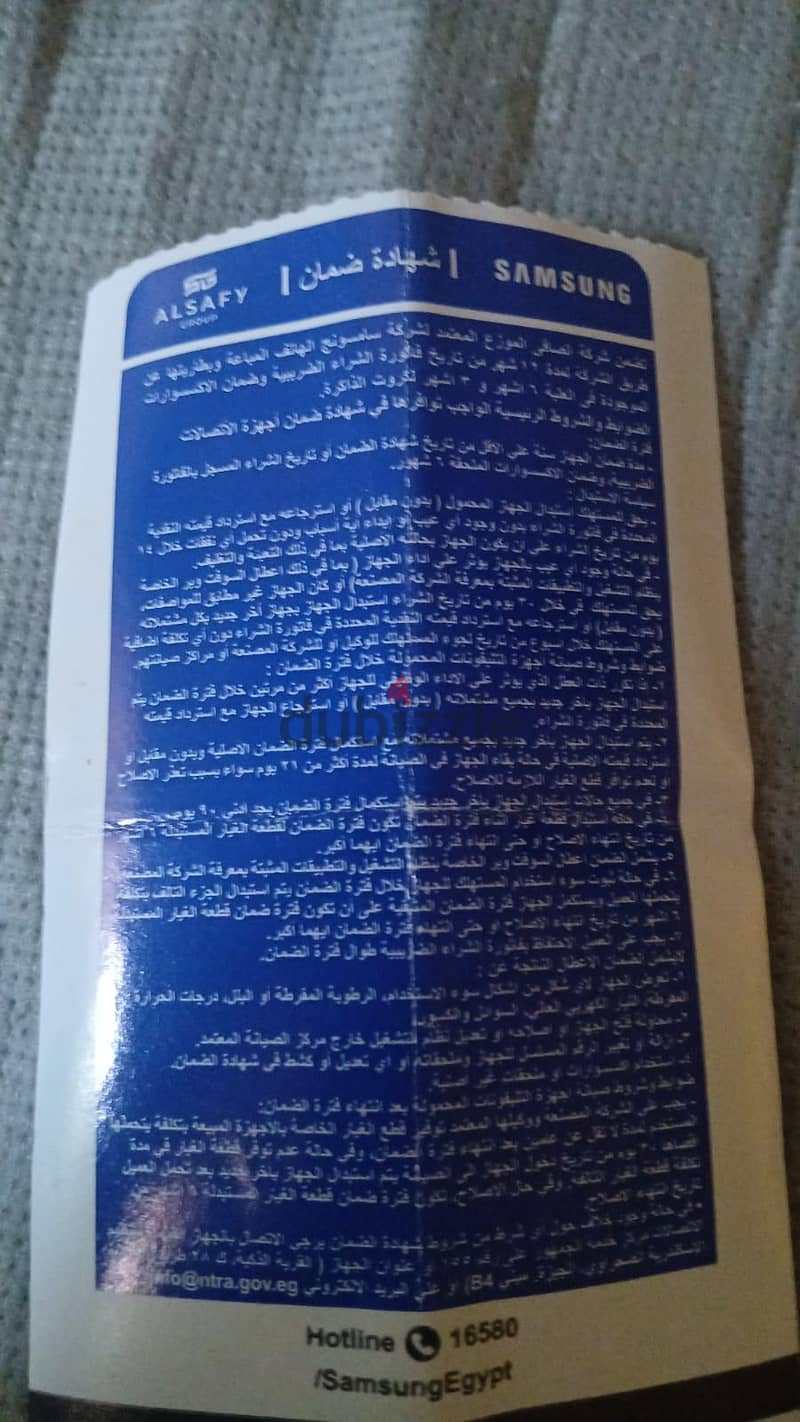 SAMSUNG | شهادة ضمان | ALSAFY GROUP
تضمن شركة الصافي الموزع المعتمد لشركة سامسونج الهاتف المباعة وبطاريتها عن
طريق الشركة لمدة ١٢ شهر من تاريخ فاتورة الشراء الضريبية وضمان الاكسسوارات
الموجودة في العلبة ٦ اشهر و ٣ اشهر لكروت الذاكرة.
الضوابط والشروط الرئيسية الواجب توافرها في شهادة ضمان أجهزة الاتصالات
فترة الضمان:
- مدة ضمان الجهاز سنة على الأقل من تاريخ شهادة الضمان أو تاريخ الشراء المسجل بالفاتورة
الضريبية، وضمان الاكسسوارات الملحقة ٦ شهور.
سياسة الاستبدال :
- يحق للمستهلك استبدال الجهاز المحمول ( بدون مقابل ) أو استرجاعه مع استرداد قيمته النقدية
المحددة في فاتورة الشراء بدون وجود أي عيب أو ابداء أية أسباب ودون تحمل أي نفقات خلال ١٤
يوم من تاريخ الشراء على أن يكون الجهاز بحالته الأصلية بما في ذلك التعبئة والتغليف.
- في حالة وجود أي عيب بالجهاز يؤثر على أداء الجهاز ( بما في ذلك اعطال السوفت وير الخاصة
بنظام التشغيل والتطبيقات المثبتة بمعرفة الشركة المصنعة) أو كان الجهاز غير مطابق للمواصفات،
يحق للمستهلك في خلال ٣٠ يوم من تاريخ الشراء استبدال الجهاز بجهاز أخر جديد بكل مشتملاته
(بدون مقابل) أو استرجاعه مع استرداد قيمته النقدية المحددة في فاتورة الشراء دون أي تكلفة اضافية
على المستهلك خلال اسبوع من تاريخ لجوء المستهلك للوكيل أو للشركة المصنعة أو مراكز صيانتهم.
ضوابط وشروط صيانة أجهزة التليفونات المحمولة خلال فترة الضمان :
الجهاز أكثر من مرتين خلال فترة الضمان يتم
استبدال الجهاز بآخر جديد بجميع مشتملاته ( بدون مقابل ) أو استرجاع الجهاز مع استرداد قيمته
المحددة في فاتورة الشراء.
يتم استبدال الجهاز بآخر جديد الضمان الاصلية وبدون مقابل أو
استرداد قيمته الاصلية في حالة بقاء الجهاز في الصيانة لمدة أكثر من ٢١ يوم سواء بسبب تعذر الاصلاح
أو لعدم توافر قطع الغيار اللازمة للاصلاح.
في جميع حالات استبدال الجهاز بآخر جديد استكمال فترة الضمان بحد أدنى ٩٠ يوم
في حالة استبدال قطعة غيار أثناء فترة الضمان تكون فترة الضمان لقطعة الغيار المستبدلة ٦
من تاريخ انتهاء الاصلاح أو حتى انتهاء فترة الضمان أيهما أكبر.
٥- يشمل الضمان أعطال السوفت وير الخاصة بنظام التشغيل والتطبيقات المثبتة بمعرفة الشركة المصنعة
٦- في حالة ثبوت سوء استخدام المستهلك للجهاز خلال فترة الضمان يتم استبدال الجزء التالف بتكلفة
يتحملها العميل ويستكمل الجهاز فترة الضمان على أن تكون فترة ضمان قطعة الغيار المستبدلة
٦ اشهر من تاريخ انتهاء الاصلاح أو حتى انتهاء فترة الضمان أيهما أكبر.
٧- يجب على العميل الاحتفاظ بفاتورة الشراء الضريبية طوال فترة الضمان.
لا يشمل الضمان الأعطال الناتجة عن :
١- تعرض الجهاز لأي شكل من أشكال سوء الاستخدام، الرطوبة المفرطة أو البلل، درجات الحرارة
المفرطة، التيار الكهربي العالي، السوائل والكسور.
٢- محاولة فتح الجهاز أو اصلاحه أو تعديل نظام التشغيل خارج مركز الصيانة المعتمد.
٣- إزالة أو تغيير الرقم المسلسل للجهاز وملحقاته أو أي تعديل أو كشط في شهادة الضمان.
٤- استخدام اكسسوارات أو ملحقات غير أصلية
ضوابط وشروط صيانة أجهزة التليفونات المحمولة بعد انتهاء فترة الضمان:
- يجب على الشركة المصنعة ووكيلها المعتمد توفير قطع الغيار الخاصة بالأجهزة المبيعة بتكلفة يتحملها
المستخدم لمدة لا تقل عن عامين بعد انتهاء فترة الضمان، وفي حالة عدم توفر قطعة الغيار في مدة
أقصاها ٣٠ يوم من تاريخ دخول الجهاز الى الصيانة يتم استبدال الجهاز بآخر جديد بعد تحمل العميل
تكلفة قطعة الغيار التالفة وفي حال الاصلاح، تكون فترة ضمان قطعة الغيار المستبدلة
تاريخ انتهاء الاصلاح.
- في حالة وجود خلاف حول أي شرط من شروط شهادة الضمان يرجى الاتصال بالجهاز
الاتصالات مركز خدمة الجمهور على رقم ١٥٥ أو عنوان الجهاز ( القرية الذكية، ك ٢٨ طريق
اسكندرية الصحراوي، الجيزة، مبنى B4) أو على البريد الالكتروني info@ntra.gov.eg
Hotline 16580
/SamsungEgypt
dubizzle